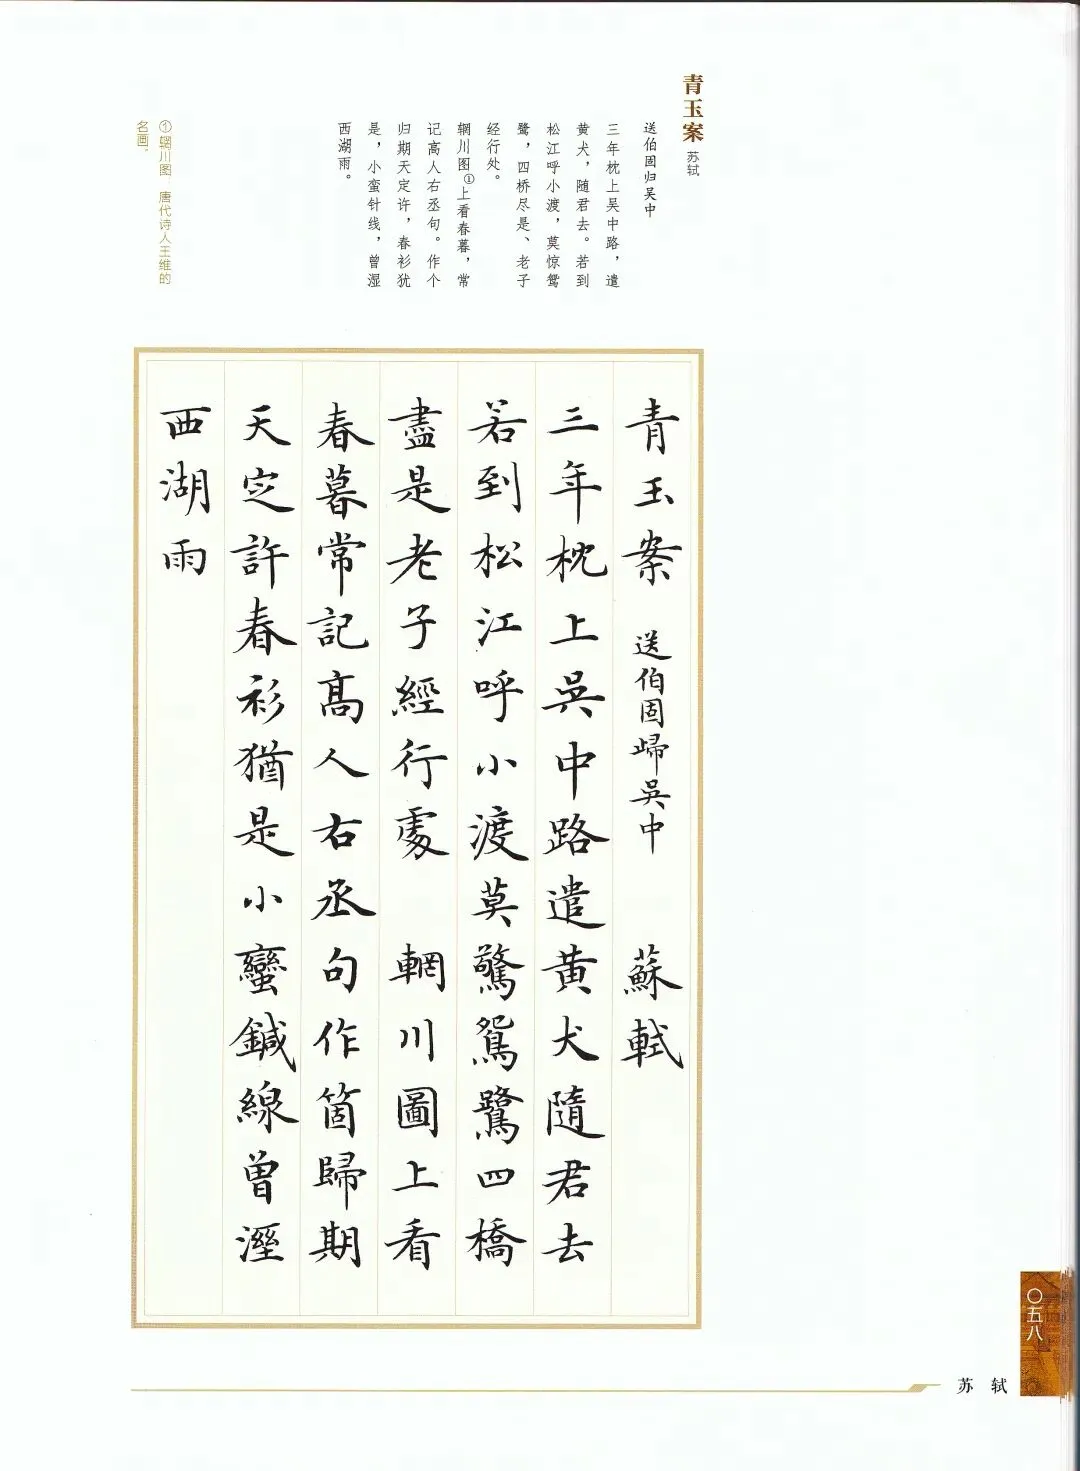 青玉案 苏轼
送伯固归吴中
三年枕上吴中路，遣
黄犬，随君去。若到
松江呼小渡，莫惊鸳
鹭，四桥尽是、老子
经行处。
辋川图①上看春暮，常
记高人右丞句。作个
归期天定许，春衫犹
是，小蛮针线，曾湿
西湖雨。
①辋川图 唐代诗人王维的
名画。
青玉案 送伯固歸吳中 蘇軾
三年枕上吳中路遣黃犬隨君去
若到松江呼小渡莫驚鴛鷺四橋
盡是老子經行處 輞川圖上看
春暮常記高人右丞句作箇歸期
天定許春衫猶是小蠻鍼線曾溼
西湖雨
〇五八
苏轼